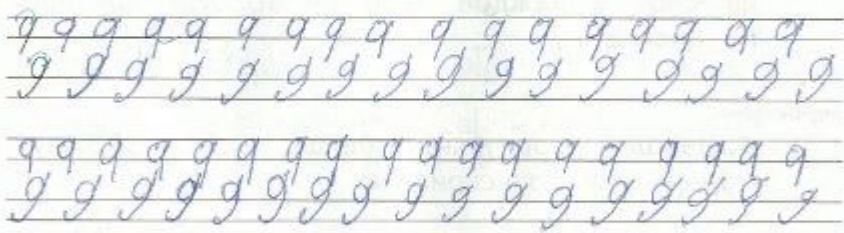 q q q q q q q q q q q q q q q q q
g g g g g g g g g g g g g g g g
q q q q q q q q q q q q q q q q q q
g g g g g g g g g g g g g g g g g